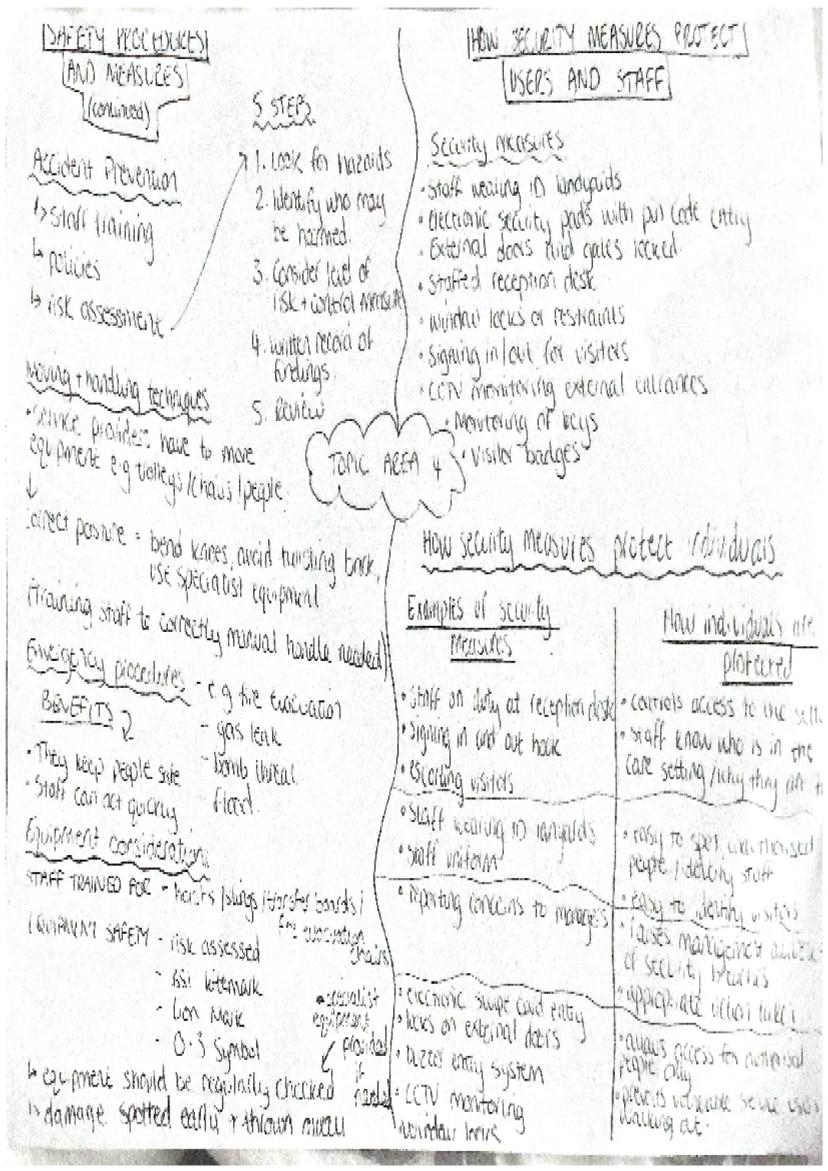 SAFETY PROCEDURES
AND MEASURES
(continued)
Accident Prevention
↳ staff training
↳ policies
↳ risk assessment
5 STEPS
1. Look for hazards
2. Identify who may
be harmed.
3. Consider level of
risk + control measure
4. written record of
findings.
5. Review
Moving + handling techniques
• Service providers have to move
equipment e.g trolleys / chairs / people
↓
Correct posture = bend knees, avoid twisting back,
use specialist equipment
(training staff to correctly manual handle needed)
Emergency procedures - e.g fire evacuation
- gas leak
- bomb threat
- flood
BENEFITS
• They keep people safe
• Staff can act quickly
Equipment considerations
STAFF TRAINED FOR - hoists / slings / transfer boards /
fire evacuation
chairs
EQUIPMENT SAFETY - risk assessed
- BSI kitemark
- Lion Mark
- 0-3 Symbol
• specialist
equipment
provided
if
needed
↳ equipment should be regularly checked
↳ damage spotted early + thrown away
TOPIC AREA 4
HOW SECURITY MEASURES PROTECT
USERS AND STAFF
Security measures
• Staff wearing ID landyards
• Electronic security pads with pin code entry
• External doors and gates locked.
• Staffed reception desk
• window locks or restraints
• Signing in/out for visitors
• CCTV monitoring external entrances
• Monitoring of keys
• Visitor badges
How security measures protect individuals
Examples of security
Measures
How individuals are
protected
• Staff on duty at reception desk
• Signing in and out book
• escorting visitors
• controls access to the
• Staff know who is in the
care setting / why they are
• Staff wearing ID lanyards
• Staff uniform
• easy to spot unauthorised
people / identify staff
• easy to identify visitors
• reporting concerns to managers
• raises management
of security breaches
• appropriate action taken
• electronic swipe card entry
• locks on external doors
• buzzer entry system
• CCTV monitoring
window locks
• allows access for authorised
people only
• prevents vulnerable service users
walking out.